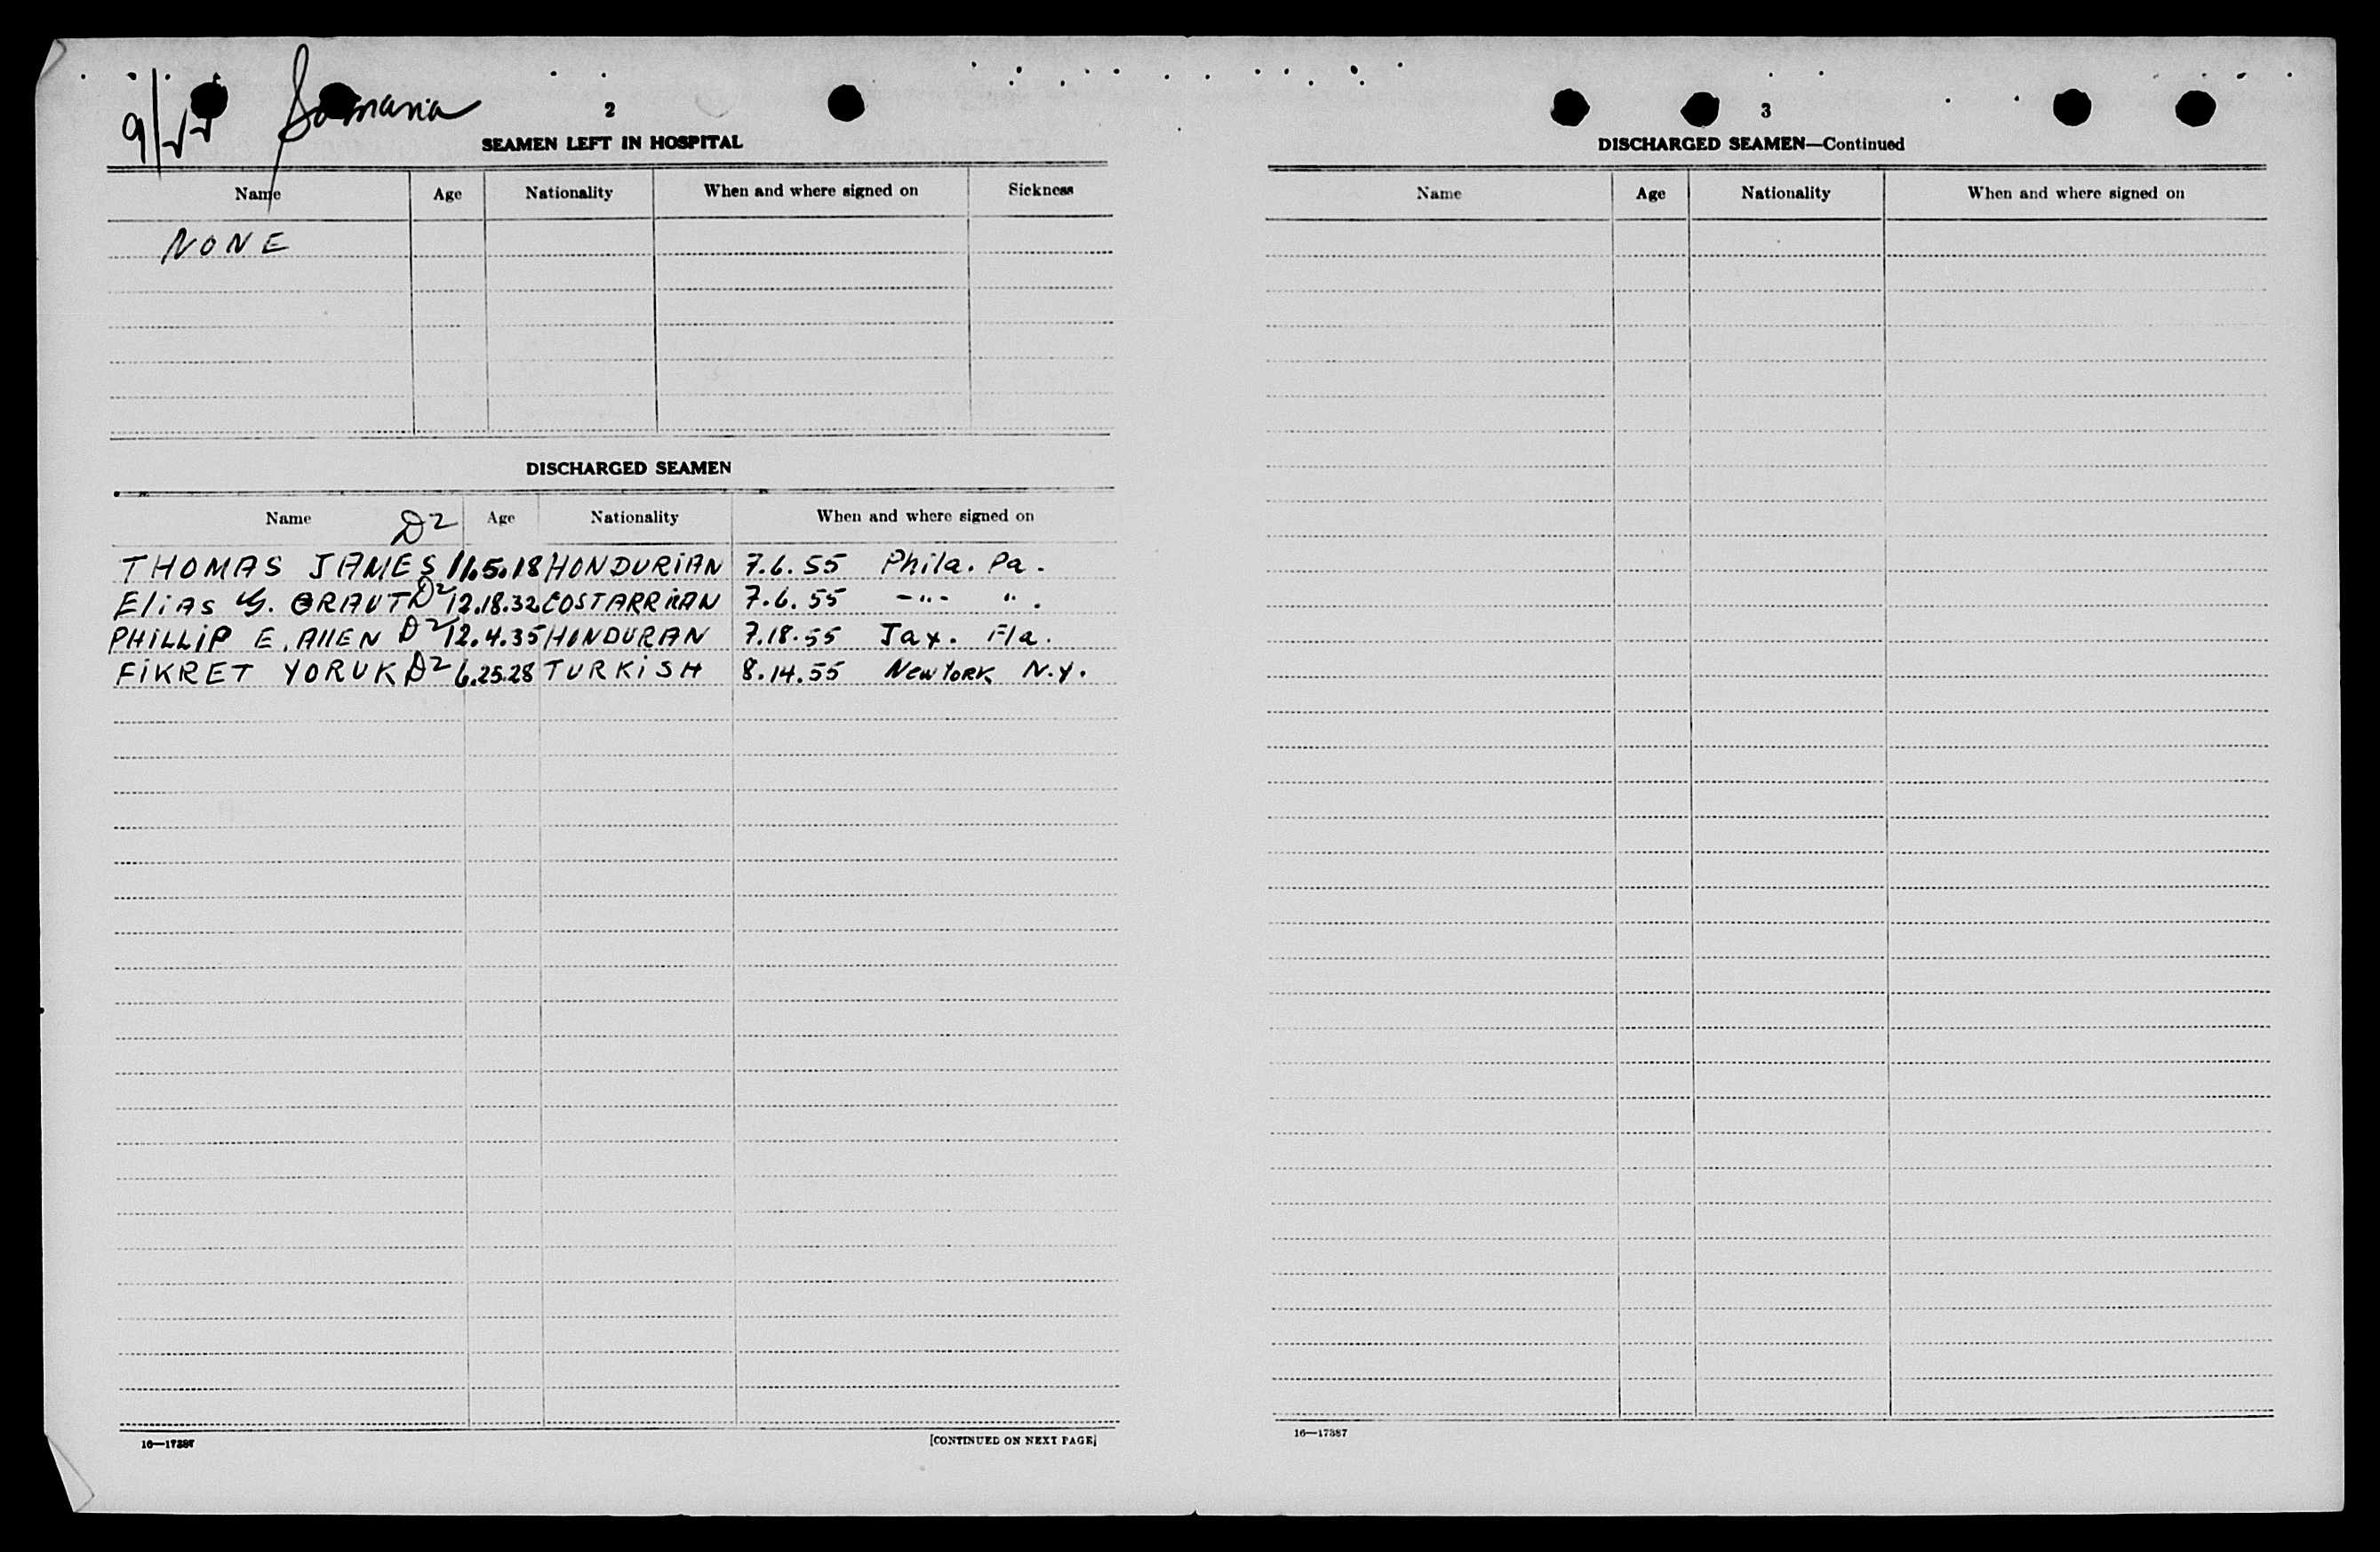 2
SEAMEN LEFT IN HOSPITAL
Name Age Nationality When and where signed on Sickness
NONE
DISCHARGED SEAMEN
Name Age Nationality When and where signed on
D2
THOMAS JAMES 11.5.18 HONDURIAN 7.6.55 Phila. Pa.
Elias G. GRAUT D2 12.18.32 COSTARRIIAN 7.6.55 -"- " .
PHILLIP E. AllEN D2 12.4.35 HONDURAN 7.18.55 Jax. Fla.
FIKRET YORUK D2 6.25.28 TURKISH 8.14.55 New YORK N.Y.
16—17387
[CONTINUED ON NEXT PAGE]
3
DISCHARGED SEAMEN—Continued
Name Age Nationality When and where signed on
16—17387